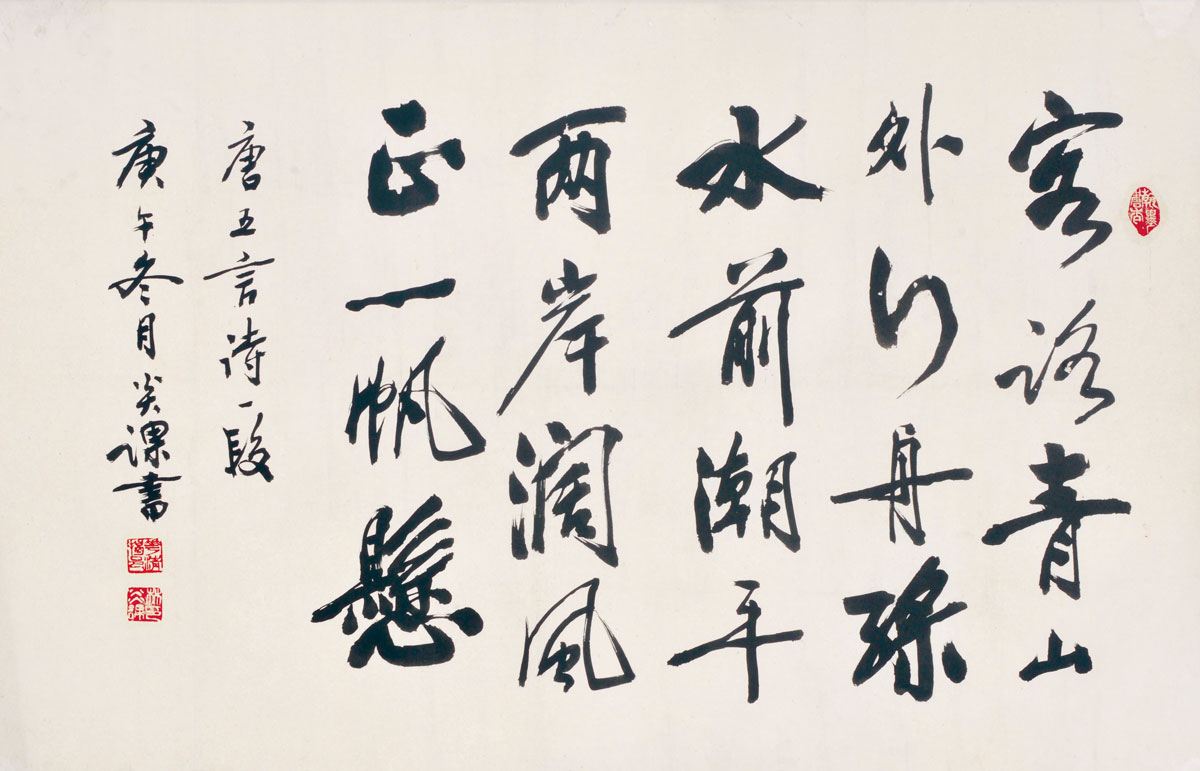 客路青山
外行舟綠
水前潮平
两岸濶風
正一帆懸
唐五言詩一段
庚午冬月炎課書